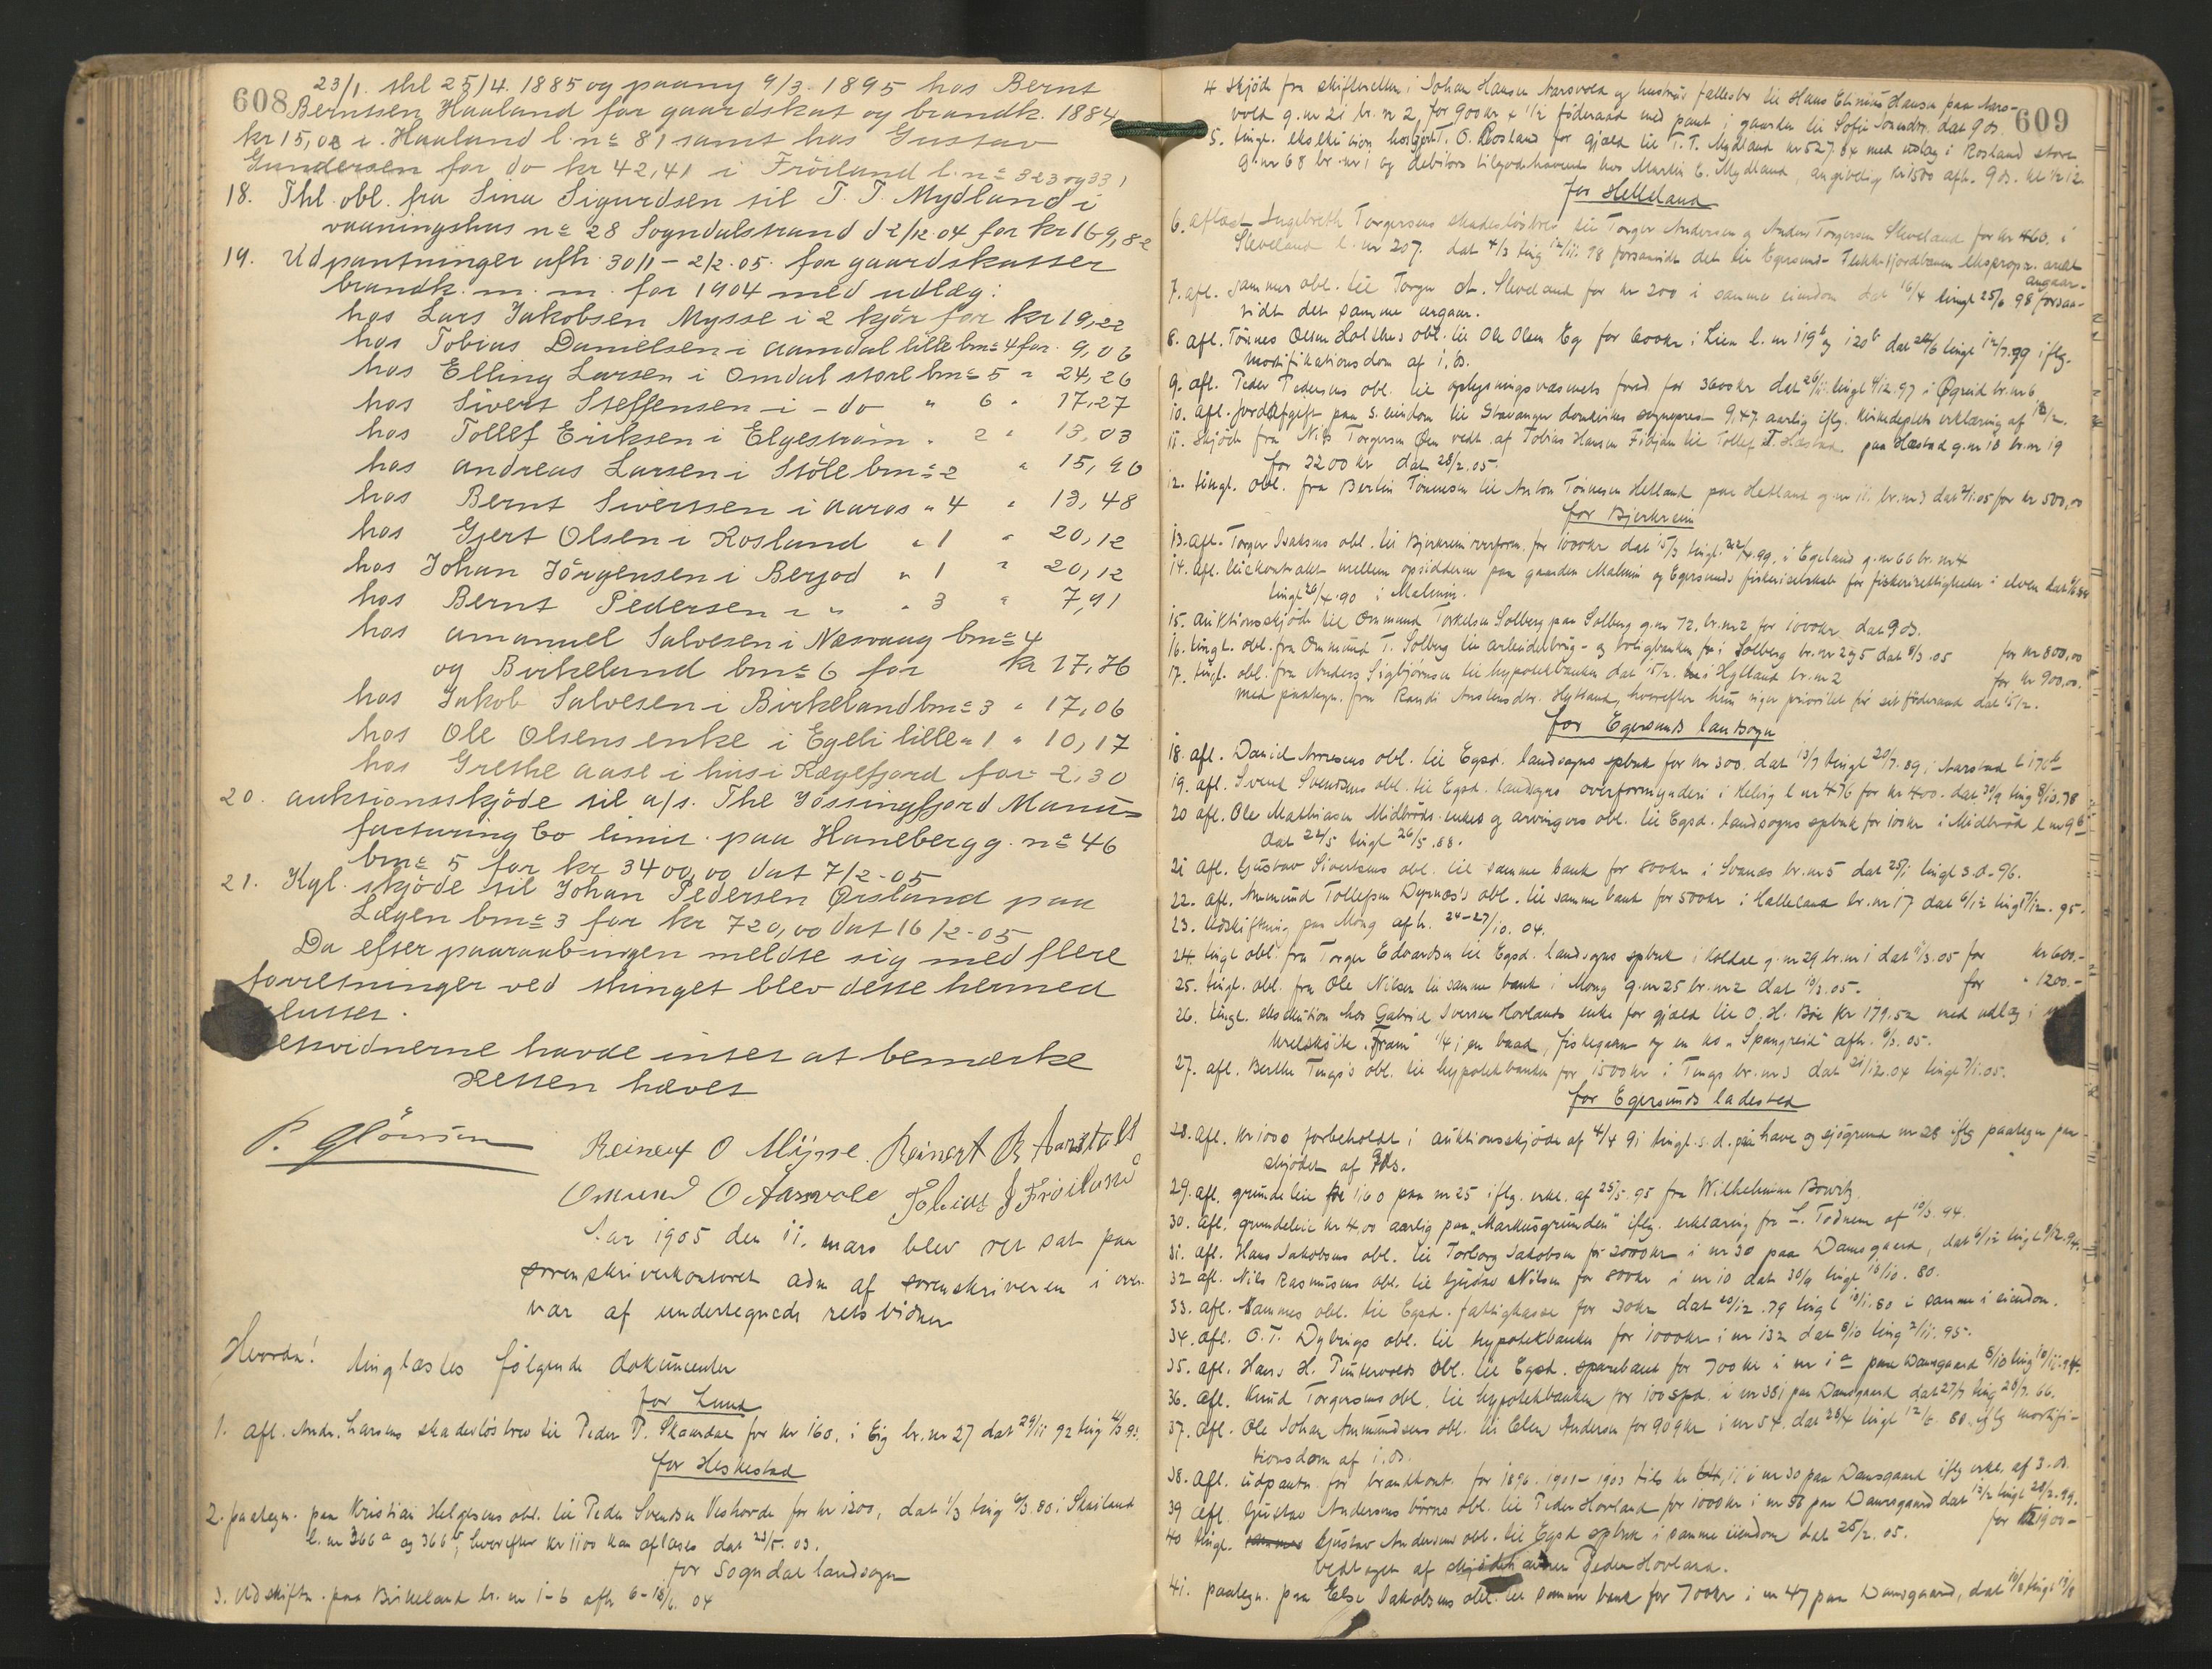 608
23/1. thl 25/4. 1885 og paany 9/3. 1895 hos Bernt
Berntsen Haaland for gaardskat og brandk. 1884
kr 15,08 i. Haaland l. no 81 samt hos Gustav
Gundersen for do kr 42,41 i Fröiland l. no 323 og 331
18. Thl. obl. fra Sina Sigurdsen til T. T. Mydland i
vaaningshus no 28 Sogndalstrand d 2/12.04 for kr 169,82
19. Udpantninger afh. 30/1 - 2/2.05. for gaardskatter
brandk. m. m. for 1904 med udlæg:
hos Lars Jakobsen Mysse i 2 kjör for kr 19,22
hos Tobias Danielsen i Aamdal lille bno 4 for 9,06
hos Elling Larsen i Omdal store bno 5 " 24,26
hos Sivert Steffensen i - do " 6 " 17,27
hos Tollef Eriksen i Elgeström " 2 " 13,03
hos Andreas Larsen i Stöle bno 2 " 15,96
hos Bernt Sivertsen i Aaros " 4 " 13,48
hos Gjert Olsen i Rosland " 1 " 20,12
hos Johan Jörgensen i Berjod " 1 " 20,12
hos Bernt Pedersen i " " 3 " 7,91
hos Amanuel Salvesen i Næsvaag bno 4
og Birkeland bno 6 for kr 17,76
hos Jakob Salvesen i Birkeland bno 3 " 17,06
hos Ole Olsens enke i Egeli lille " 1 " 10,17
hos Grethe Aase i hus i Rægefjord for 2,30
20. Auktionsskjöde til a/s. The Jössingfjord Manu=
facturing Co limit. paa Haneberg g. no 46
bno 5 for kr 3400,00 dat 7/2-05
21. Kgl. skjöde til Johan Pedersen Örsland paa
Lægen bno 3 for kr 720,00 dat 16/2-05
Da efter paaraabningen meldte sig med flere
forretninger ved thinget blev dette hermed
sluttet.
Retsvidnerne havde intet at bemærke
Retten hævet
Reinert O Mÿsse. Reinert R Aarstad
Omund O Aarsvold Tobias J Fröiland
Aar 1905 den 11. mars blev ret sat paa
sorenskriverkontoret adm af sorenskriveren i over-
vær af undertegnede retsvidner
Hvorda! tinglæstes følgende dokumenter
for Lund
1. Afl. Andr. Larsens skadesløsbrev til Peder P. Skaardal for kr 160, i Eig br. nr 27 dat 29/11 92 ting
for Heskestad
2. paategn. paa Kristian Helgesens obl. til Peder Svendsen Veshovde for kr 1200, dat 1/3 ting 6/3. 80 i Skailand
l. nr 366 a og 366 b, hvorefter kr 1100 kan aflæses dat 23/5. 03.
for Sogndal landsogn
3. Udskiftn. paa Birkeland br. nr 1-6 afh 6-18/6. 04
609
4 skjöde fra skifteretten i Johan Hansen Aarsvold og hustrus fællesbo til Hans Elinius Hansen paa Aars-
vold g. nr 21 br. nr 2, for 900 kr + 1/2 föderaad med pant i gaarden til Sofie dat 9 ds.
5. tingl. eksekution hos T. O. Rosland for gjæld til T. T. Mydland kr 527.84 med udlæg i Rosland store
g. nr 68 br. nr 1 og debitors tilgodehavende hos Martin E. Mydland, angivelig kr 1500 afh. 9 ds. kl
for Helleland
6. aflæst Ingebreth Torgersens skadesløsbrev til Torger Andersen og Anders Torgersen Sleveland for kr 460. i
Sleveland l. nr 207. dat 4/3 ting 12/11. 98 forsaavidt det til Egersund-Flekkefjordbanen ekspropr. areal
angaar.
7. afl. sammes obl. til Torger A. Sleveland for kr 200 i samme eiendom dat 16/4 tingl 25/6 98 forsaa-
vidt det samme angaar.
8. afl. Tönnes Olsen Holthes obl. til Ole Olsen Eg for 600 kr i Lien l. nr 119 b og 120 b dat tingl 12/7. 99 iflg.
mortifikationsdom af 1. ds.
9. afl. Peder Pedersens obl. til oplysningsvæsenets fond for 3600 kr dat 26/11 tingl 4/12. 97 i Ögreid br. nr 6
10. afl. jordafgift paa s. eiendom til Stavanger domkirkes sognepres - 9,47 aarlig iflg. kirkedeptets erklæring af
11. skjöde fra Nils Torgersen Öen vedt. af Tobias Hansen til Tollef T. Hæstad paa Hæstad g. nr 10 br. nr 19
for 2200 kr dat 28/2. 05.
12. tingl. obl. fra Bertin Tönnesen til Anton Tönnesen Hetland paa Hetland g. nr 11 br. nr 3 dat for kr 500,00
for Bjerkreim
13. afl. Torger Isaksens obl. til Bjerkreim overform. for 1000 kr dat 15/3 tingl. 22/4. 99, i Egeland g. nr 66 br. nr 4
14. afl. leiekontrakt mellem opsidderne paa gaarden Malmin og Egersunds fiskeriselskab for fiskerirettigheder i elven dat
tingl 26/4. 90 i Malmin.
15. auktionsskjöde til Ommund Torkelsen Solberg paa Solberg g. nr 72, br. nr 2 for 1000 kr dat 9 ds.
16. tingl. obl. fra Ommund T. Solberg til arbeiderbrug- og boligbanken i Solberg br. nr 2 og 5 dat 8/3. 05 for kr 800,00
17. tingl. obl. fra Anders Sigbjörnsen til hypotekbanken dat 15/2. i Hytland br. nr 2 for kr 900,00.
med paategn. fra Randi Anslensdtr. Hytland, hvorefter hun viger prioritet for sit föderaad dat 15/2.
for Egersunds landsogn
18. afl. Daniel obl. til Egsd. landsogns spbnk for kr 300. dat 13/7 tingl 20/7. 89, i Aarstad l 170 b
19. afl. Svend Svendsens obl. til Egsd. landsogns overformynderi i Helvig l nr 476 for kr 400. dat 30/9 ting 8/10. 78
20 afl. Ole Mathiasen Midbröds enkes og arvingers obl. til Egsd. landsogns spbnk for 100 kr i Midbröd l nr 9 b
dat 22/5 tingl 26/5. 88.
21 afl. Gustav Sivertsens obl. til samme bank for 800 kr i Svanæs br. nr 5 dat 25/1 tingl s. d. 96.
22. afl. Ammund Tollefsen Dyrnæs's obl. til samme bank for 500 kr i Halleland br. nr 17 dat 6/12 tingl 7/12. 95.
23. Udskiftning paa Mong afh. 24-27/10. 04.
24. tingl obl. fra Torger Edvardsen til Egsd. landsogns spbnk i Koldal g. nr 29 br. nr 1 dat 11/3. 05 for kr 600.-
25. tingl. obl. fra Ole Nilsen til samme bank i Mong g. nr 25 br. nr 2 dat 10/3. 05. for " 1200.-
26. tingl. eksekution hos Gabriel Iversen Hovlands enke for gjæld til O. H. Böe kr 179.52 med udlæg i
"Fram" 1/4 i en baad, fiskegarn og en ko "Spangreid" afh. 6/3. 05.
27. afl. Berthe Tengs's obl. til hypotekbanken for 1500 kr i Tengs br. nr 3 dat 21/12. 04 tingl 7/1. 05.
for Egersunds ladested
28. afl. kr 1000 forbeholdt i auktionsskjöde af 4/4 91 tingl. s. d. paa have og sjögrund nr 28 iflg paategn paa
skjödet af 9 ds.
29. afl. grundeleie kr 1160 paa nr 25 iflg. erkl. af 25/5. 95 fra Wilhelmine Bowitz.
30. afl. grundeleie kr 4,00 aarlig paa "Markusgrunden" iflg. erklæring fra L. Todnem af 10/3. 94.
31. afl. Hans Jakobsens obl. til Torborg Jakobsen for 2000 kr i nr 30 paa Damsgaard, dat 6/12 tingl 8/12. 94.
32 afl. Nils Rasmusens obl. til Gustav Nilsen for 800 kr i nr 10 dat 30/9 tingl 18/10. 80.
33. afl. sammes obl. til Egsd. fattigkasse for 30 kr dat 20/12. 79 tingl 10/1. 80 i samme eiendom.
34. afl. O. T. Dybings obl. til hypotekbanken for 1000 kr i nr 132 dat 8/10 ting 2/11. 95.
35. afl. Hans H. Puntervolds obl. til Egsd. sparebank for 700 kr i nr 1 a paa Damsgaard 8/10 ting 10/11. 94.
36. afl. Knud Torgersens obl. til hypotekbanken for 100 spd. i nr 38 i paa Damsgaard dat 27/7 ting 28/7. 66.
37. afl. Ole Johan Ammundsens obl. til Elen Andersen for 909 kr i nr 54. dat 28/4 tingl 12/6. 80. iflg mortifi-
tionsdom af 1. ds.
38. afl. udpantn. for brandkont. for 1896. 1901 - 1903 tils kr i nr 30 paa Damsgaard iflg erkl. af 3. ds.
39 afl. Gustav Andersens börns obl. til Peder Hovland for 1000 kr i nr 56 paa Damsgaard dat 13/2 tingl 28/2. 99.
40 tingl. sammes Gustav Andersens obl. til Egsd spbnk i samme eiendom dat 25/2. 05. for kr 1900-
vedtaget af Peder Hovland.
41. paategn. paa Else Jakobsens obl. til samme bank for 700 kr i nr 47 paa Damsgaard, dat